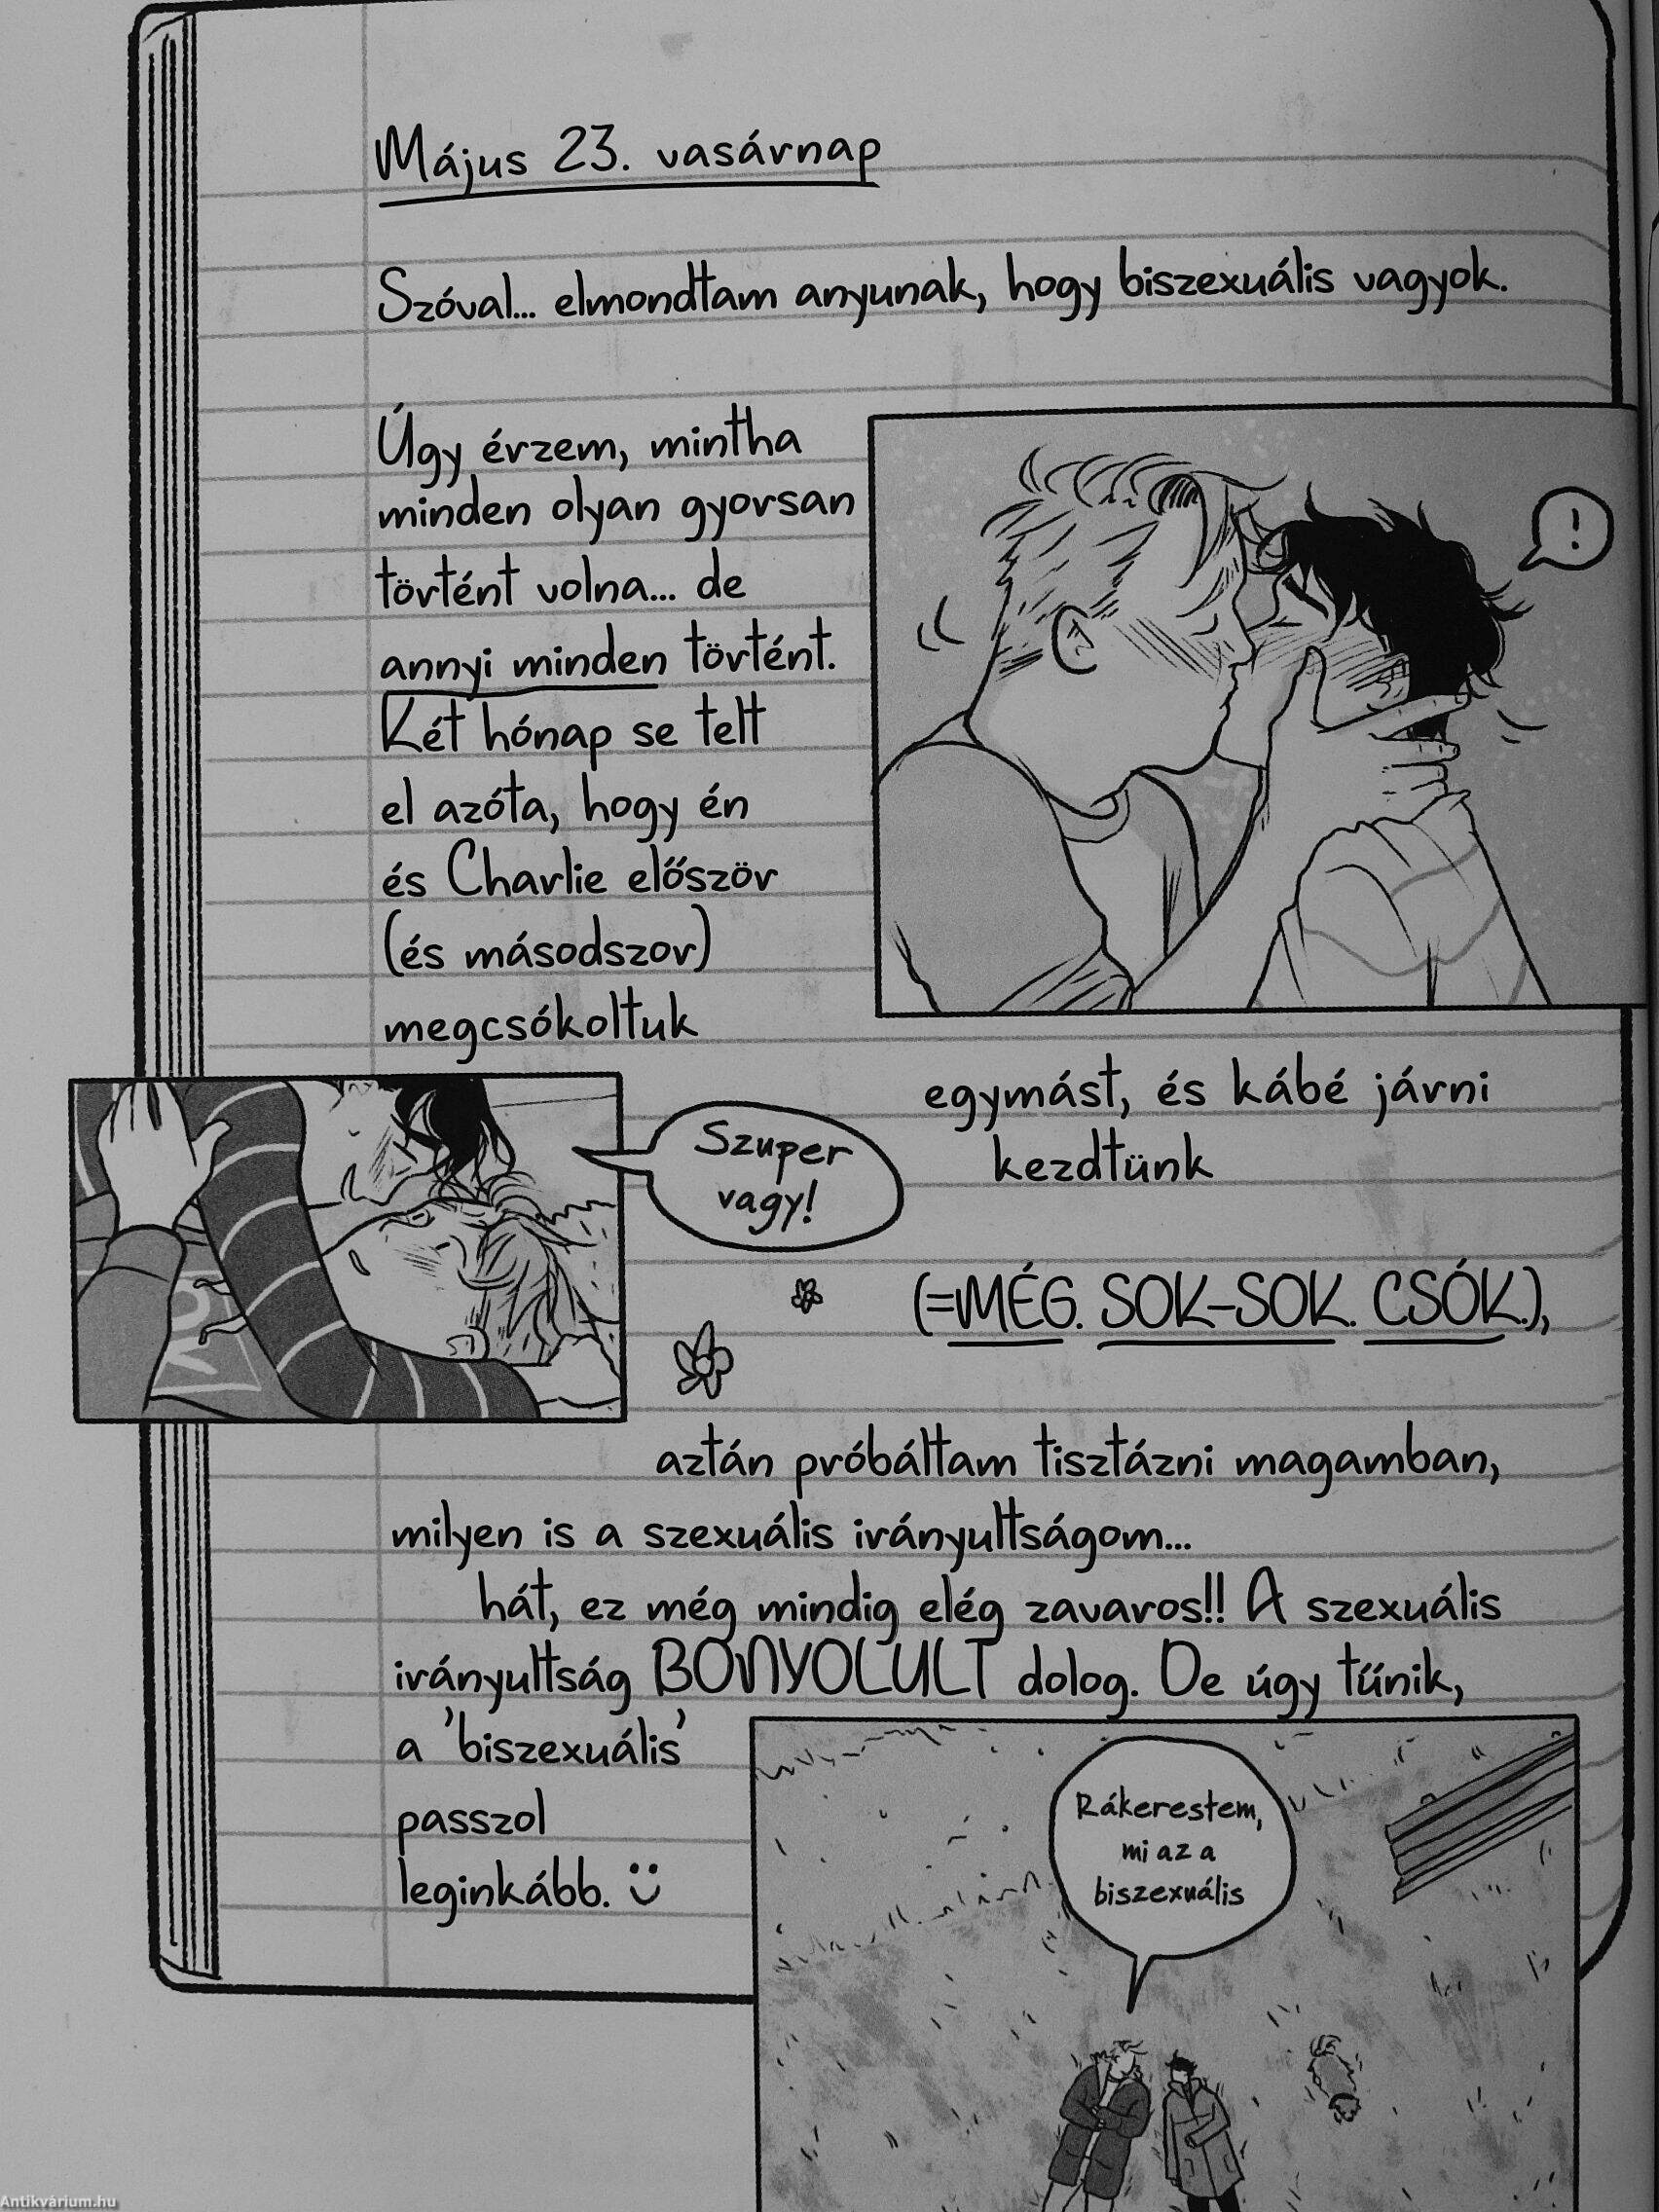 Május 23. vasárnap
Szóval... elmondtam anyunak, hogy biszexuális vagyok.
Úgy érzem, mintha
minden olyan gyorsan
történt volna... de
annyi minden történt.
Két hónap se telt
el azóta, hogy én
és Charlie először
(és másodszor)
megcsókoltuk
!
egymást, és kábé járni
kezdtünk
Szuper
vagy!
(=MÉG. SOK-SOK. CSÓK.),
aztán próbáltam tisztázni magamban,
milyen is a szexuális irányultságom...
hát, ez még mindig elég zavaros!! A szexuális
irányultság BONYOLULT dolog. De úgy tűnik,
a 'biszexuális'
passzol
leginkább.
Rákerestem,
mi az a
biszexuális
Antikvárium.hu